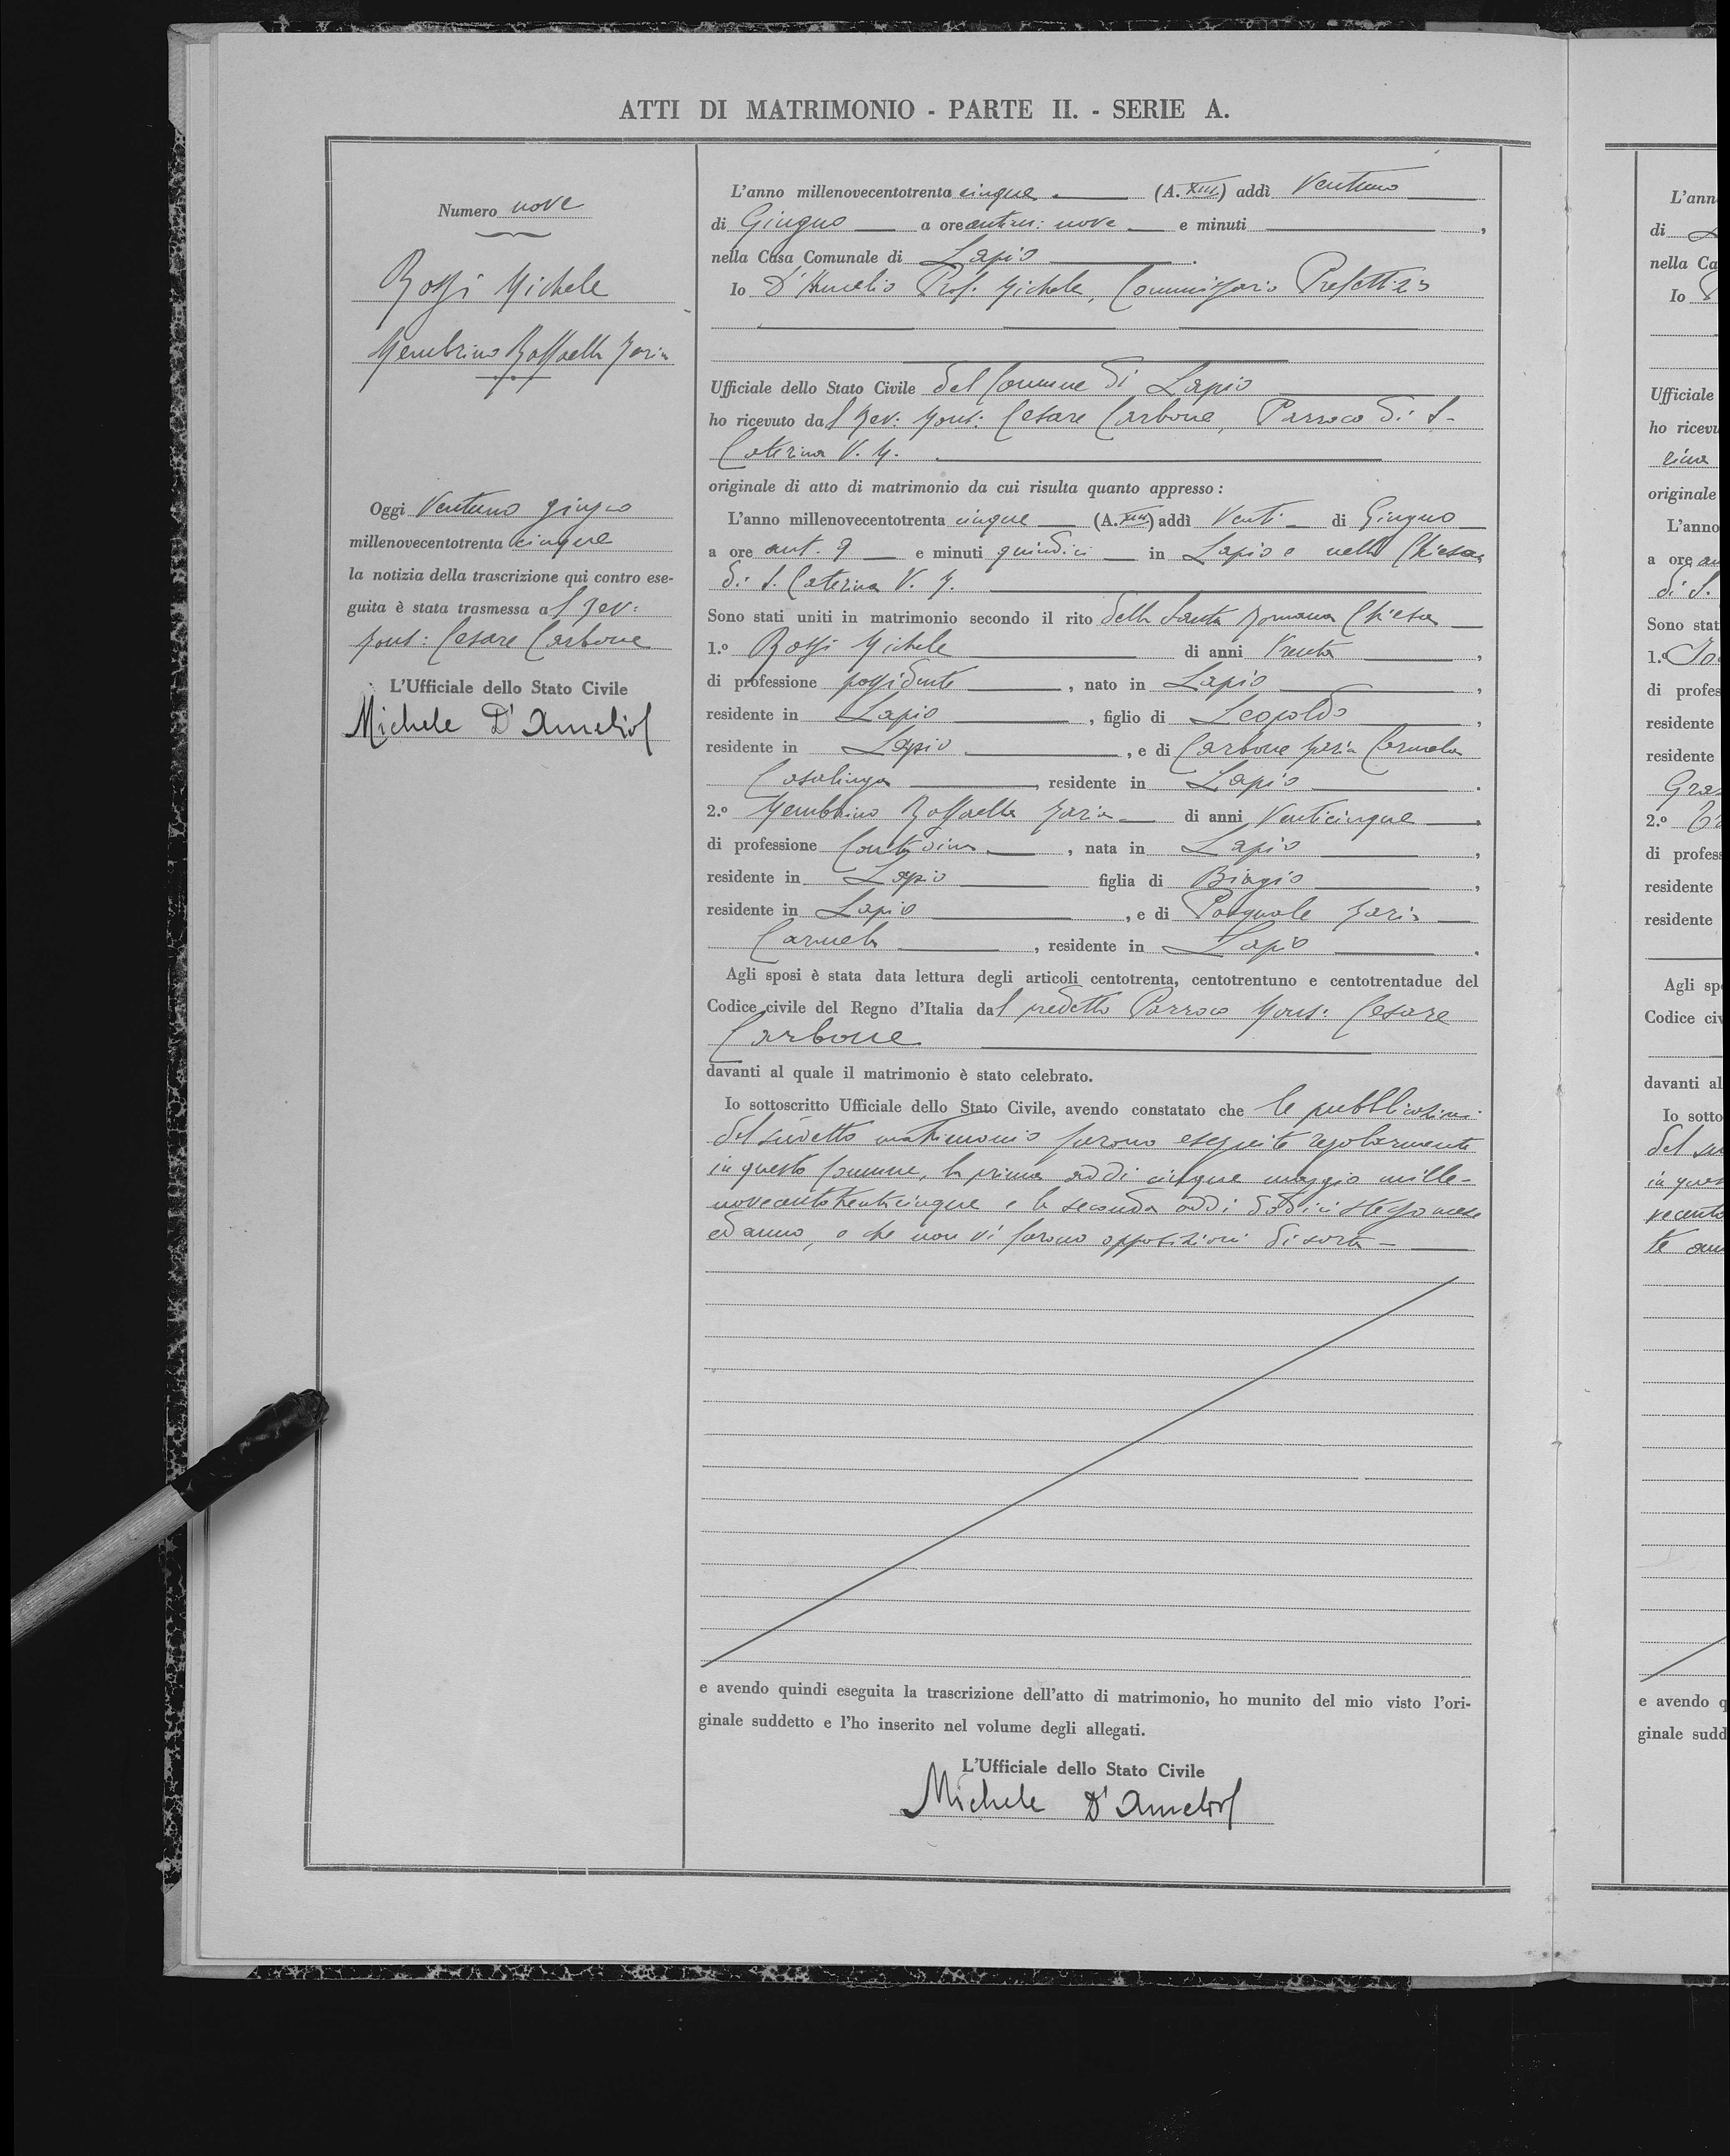 ATTI DI MATRIMONIO - PARTE II. - SERIE A.
Numero nove
Rossi Michele
Membrino Raffaella Maria
Oggi Ventuno giugno
millenovecentotrenta cinque
la notizia della trascrizione qui contro ese-
guita è stata trasmessa al Rev:
Mons: Cesare Carbone
L'Ufficiale dello Stato Civile
Michele D'Amelio
L'anno millenovecentotrenta cinque (A. XIII.) addì Ventuno
di Giugno a ore antim: nove e minuti ,
nella Casa Comunale di Lapio .
Io D'Amelio Prof. Michele, Commissario Prefettizio
Ufficiale dello Stato Civile del Comune di Lapio
ho ricevuto dal Rev: Mons: Cesare Carbone, Parroco di S.
Caterina V. M.
originale di atto di matrimonio da cui risulta quanto appresso :
L'anno millenovecentotrenta cinque (A. XIII) addì Venti di Giugno
a ore ant. 9 e minuti quindici in Lapio e nella Chiesa
di S. Caterina V. M.
Sono stati uniti in matrimonio secondo il rito della Santa Romana Chiesa
1.º Rossi Michele di anni Trenta ,
di professione possidente , nato in Lapio ,
residente in Lapio , figlio di Leopoldo ,
residente in Lapio , e di Carbone Maria Carmela
Casalinga , residente in Lapio .
2.º Membrino Raffaella Maria di anni Venticinque ,
di professione Contadina , nata in Lapio ,
residente in Lapio figlia di Biagio ,
residente in Lapio , e di Pasquale Maria
Carmela , residente in Lapio .
Agli sposi è stata data lettura degli articoli centotrenta, centotrentuno e centotrentadue del
Codice civile del Regno d'Italia dal predetto Parroco Mons: Cesare
Carbone
davanti al quale il matrimonio è stato celebrato.
Io sottoscritto Ufficiale dello Stato Civile, avendo constatato che le pubblicazioni
del sudetto matrimonio furono eseguite regolarmente
in questo Comune, la prima addi cinque maggio mille-
novecentotrenticinque e la seconda addi dodici stesso mese
ed anno, e che non vi furono opposizioni di sorta -
e avendo quindi eseguita la trascrizione dell'atto di matrimonio, ho munito del mio visto l'ori-
ginale suddetto e l'ho inserito nel volume degli allegati.
L'Ufficiale dello Stato Civile
Michele D'Amelio
L'ann
di
nella Ca
Io
Ufficiale
ho ricevu
originale
L'anno
a ore an
di S.
Sono stat
1.º
di profes
residente
residente
2.º
di profess
residente
residente
Agli spo
Codice civ
davanti al
Io sotto
del su
in ques
vecento
e avendo q
ginale sudd